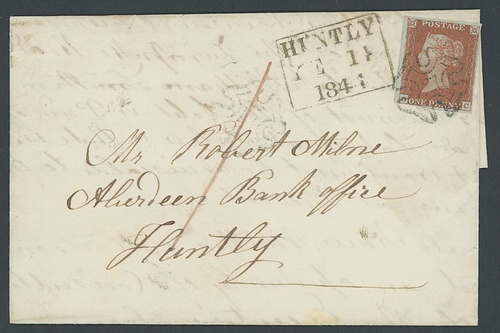 HUNTLY
FE 11
1844
POSTAGE
ONE PENNY
Mr Robert Milne
Aberdeen Bank office
Huntly